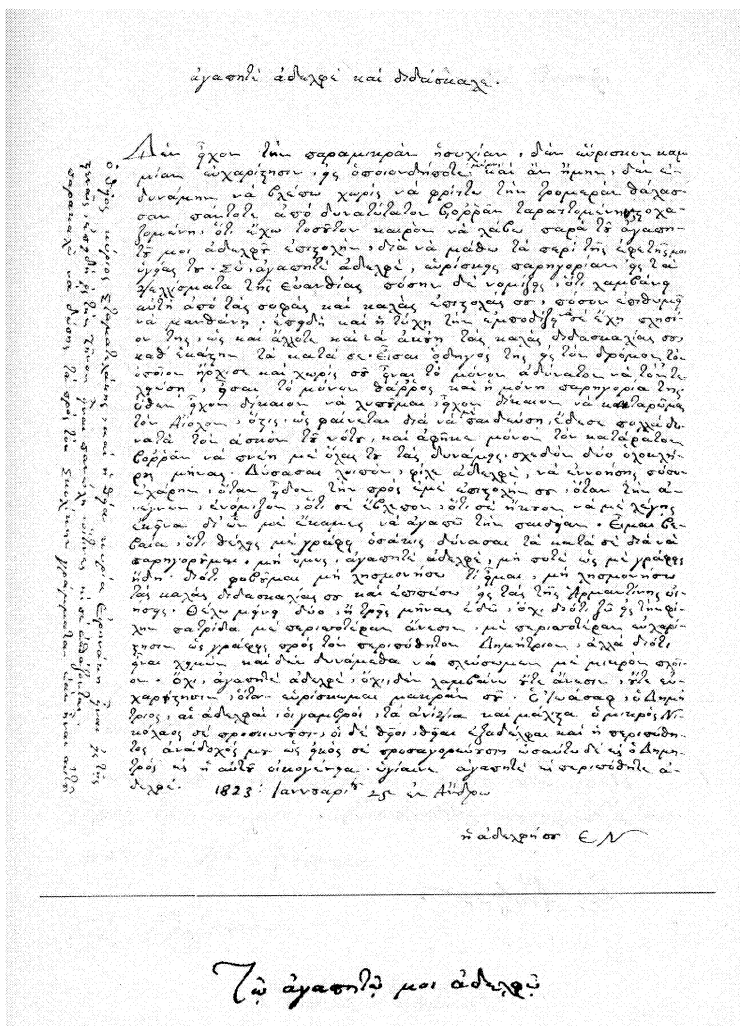 ἀγαπητὲ ἀδελφὲ καὶ διδάσκαλε.
Δὲν ἦχον τὴν παραμικρὰν ἡσυχίαν, δὲν εὕρισκον καμ
μίαν εὐχαρίστησιν, ὁποιονδήποτε καὶ ἂν ἤμην, δὲν ἐ
δυνάμην νὰ βλέπω χωρὶς νὰ φρίττω τὴν τρομερὰν θάλασ
σαν πάντοτε ἀπὸ δυνατώτατον βορρᾶν ταραττομένην
ὅτι ἔχω τοσοῦτον καιρὸν νὰ λάβω παρὰ τοῦ ἀγαπη
τοῦ μοι ἀδελφοῦ ἐπιστολὴν, διὰ νὰ μάθω τὰ περὶ τῆς
Σὺ, ἀγαπητὲ ἀδελφὲ, εὑρίσκῃς παρηγορίαν
τῆς Εὐανθίας πόσην δὲ νομίζεις, ὅτι λαμβάνει
αὐτὴ ἀπὸ τὰς σοφὰς καὶ καλὰς ἐπιστολάς σου, πόσον ἐπιθυμεῖ
νὰ μανθάνῃ, ἐπειδὴ καὶ ἡ τύχη τὴν ἐμποδίζει νὰ σὲ ἔχῃ πλησί
ον της, ὡς καὶ ἄλλοτε καὶ νὰ ἀκούῃ τὰς καλὰς διδασκαλίας σου,
καθ' ἑκάστην τὰ κατὰ σέ. Εἶσαι ὁδηγός της εἰς τὸν δρόμον τὸν
ὁποῖον ἤρχισε καὶ χωρὶς σοῦ εἶναι τὸ μόνον ἀδύνατον νὰ τὸν τε
λειώσῃ, εἶσαι τὸ μόνον θάρρος καὶ ἡ μόνη παρηγορία της
ὅθεν εἶχον δίκαιον νὰ λυποῦμαι, εἶχον δίκαιον νὰ καταρῶμαι
τὸν Αἴολον, ὅστις, ὡς φαίνεται διὰ νὰ μὲ παιδεύσῃ, ἔδεσε πολλὰ δυ
νατὰ τὸν ἀσκὸν τοῦ νότου, καὶ ἀφῆκε μόνον τὸν κατάρατον
βορρᾶν νὰ πνέῃ μὲ ὅλας του τὰς δυνάμεις, σχεδὸν δύο ὁλοκλή
ρους μῆνας. Δύνασαι λοιπὸν, φίλε ἀδελφὲ, νὰ ἐννοήσῃς πόσον
ἐχάρην, ὅταν εἶδον τὴν πρὸς ἐμὲ ἐπιστολήν σου, ὅταν τὴν ἀ
νεγίνωσκον, ἐνόμιζον, ὅτι σὲ ἔβλεπον, ὅτι σὲ ἤκουον νὰ μὲ λέγῃς
ἐκεῖνα δι' ὧν μὲ ἔκαμες νὰ ἀγαπῶ τὴν παιδείαν. Εἶμαι βε
βαία, ὅτι θέλεις μὲ γράφει ὁσάκις δύνασαι τὰ κατὰ σὲ διὰ νὰ
παρηγοροῦμαι, μὴ ὅμως, ἀγαπητὲ ἀδελφὲ, μή ποτε ὡς μὲ γράφεις
ἤδη. διότι φοβοῦμαι μὴ λησμονήσω τί εἶμαι, μὴ λησμονήσω
τὰς καλὰς διδασκαλίας σου καὶ ἐμπέσω εἰς τὰς τῆς Ἀρμαντίνης
Θέλω μείνει δύο, ἢ τρεῖς μῆνας ἐδῶ, ὄχι διότι ζῶ εἰς τὴν φί
λην πατρίδα μὲ περισσοτέραν ἄνεσιν, μὲ περισσοτέραν εὐχαρί
στησιν ὡς γράφεις πρὸς τὸν περιπόθητον Δημήτριον, ἀλλὰ διότι
εἶναι χειμὼν καὶ δὲν δυνάμεθα νὰ πλεύσωμεν μὲ μικρὸν πλοῖ
ον. ὄχι, ἀγαπητὲ ἀδελφὲ, ὄχι, δὲν λαμβάνω οὔτε ἄνεσιν, οὔτε εὐ
χαρίστησιν, ὅταν εὑρίσκωμαι μακρὰν σοῦ. Ὁ Ἰωάσαφ, ὁ Δημή
τριος, αἱ ἀδελφαὶ, οἱ γαμβροὶ, τὰ ἀνίψια καὶ μάλιστα ὁ μικρὸς Νι
κόλαος σὲ προσκυνοῦσιν, οἱ δὲ θεῖοι, θεῖαι ἐξάδελφαι καὶ ἡ περιπόθη
τος ἀνάδοχός μου ὡς υἱός σὲ προσαγορεύουσιν ὡσαύτως δὲ καὶ ὁ Δημή
τριος καὶ ἡ αὐτοῦ οἰκογένεια. ὑγίαινε ἀγαπητὲ καὶ περιπόθητε ἀ
δελφέ. 1823: Ἰαννουαρίου 25 ἐν Ἄνδρῳ
ἡ ἀδελφή σου Ε Ν
ὁ θεῖος κύριος Σταματάκης, καὶ ἡ θεία κυρία Εἰρηνάκη εἶναι εἰς τῆς
παρακαλῶ νὰ δώσῃς τὰ πρὸς τὸν γράμματα
Τῷ ἀγαπητῷ μοι ἀδελφῷ